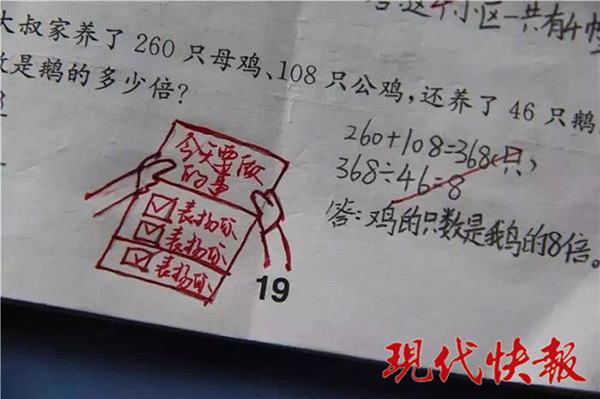 这个小区一共有4幢
大叔家养了 260 只母鸡、108 只公鸡,还养了 46 只鹅
数是鹅的多少倍?
260+108=368(只)
368÷46=8
答:鸡的只数是鹅的8倍。
今天要做
的事
表扬你
表扬你
表扬你
19
现代快報